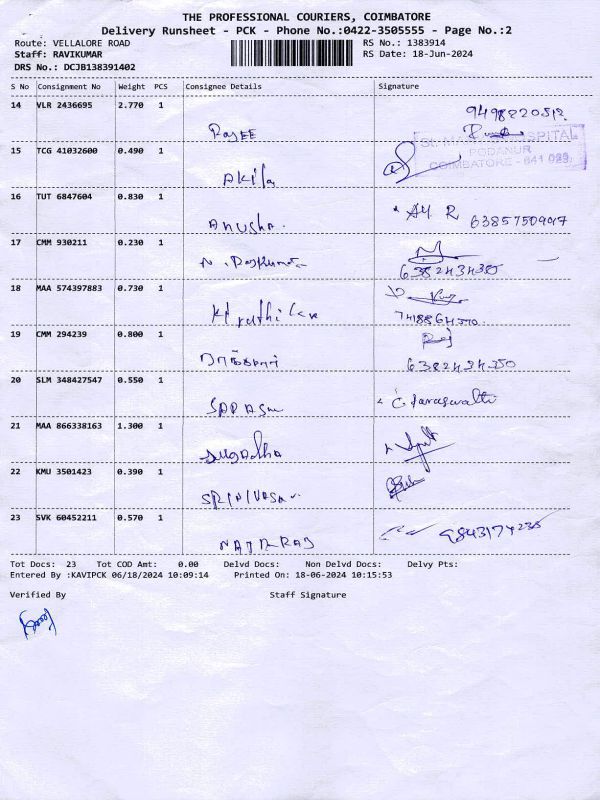 THE PROFESSIONAL COURIERS, COIMBATORE
Delivery Runsheet - PCK - Phone No.:0422-3505555 - Page No.:2
Route: VELLALORE ROAD RS No.: 1383914
Staff: RAVIKUMAR RS Date: 18-Jun-2024
DRS No.: DCJB138391402
S No Consignment No Weight PCS Consignee Details Signature
14 VLR 2436695 2.770 1
Rajee
HOSPITAL
PODANUR
COIMBATORE - 641 023
15 TCG 41032600 0.490 1
Akila
16 TUT 6847604 0.830 1
Anusha.
17 CMM 930211 0.230 1
N. Rajkumar
18 MAA 574397883 0.730 1
19 CMM 294239 0.800 1
6382434350
20 SLM 348427547 0.550 1
C. Saraswathi
21 MAA 866338163 1.300 1
22 KMU 3501423 0.390 1
SRINIVASAN
23 SVK 60452211 0.570 1
NATARAJ 9843174235
Tot Docs: 23 Tot COD Amt: 0.00 Delvd Docs: Non Delvd Docs: Delvy Pts:
Entered By :KAVIPCK 06/18/2024 10:09:14 Printed On: 18-06-2024 10:15:53
Verified By Staff Signature